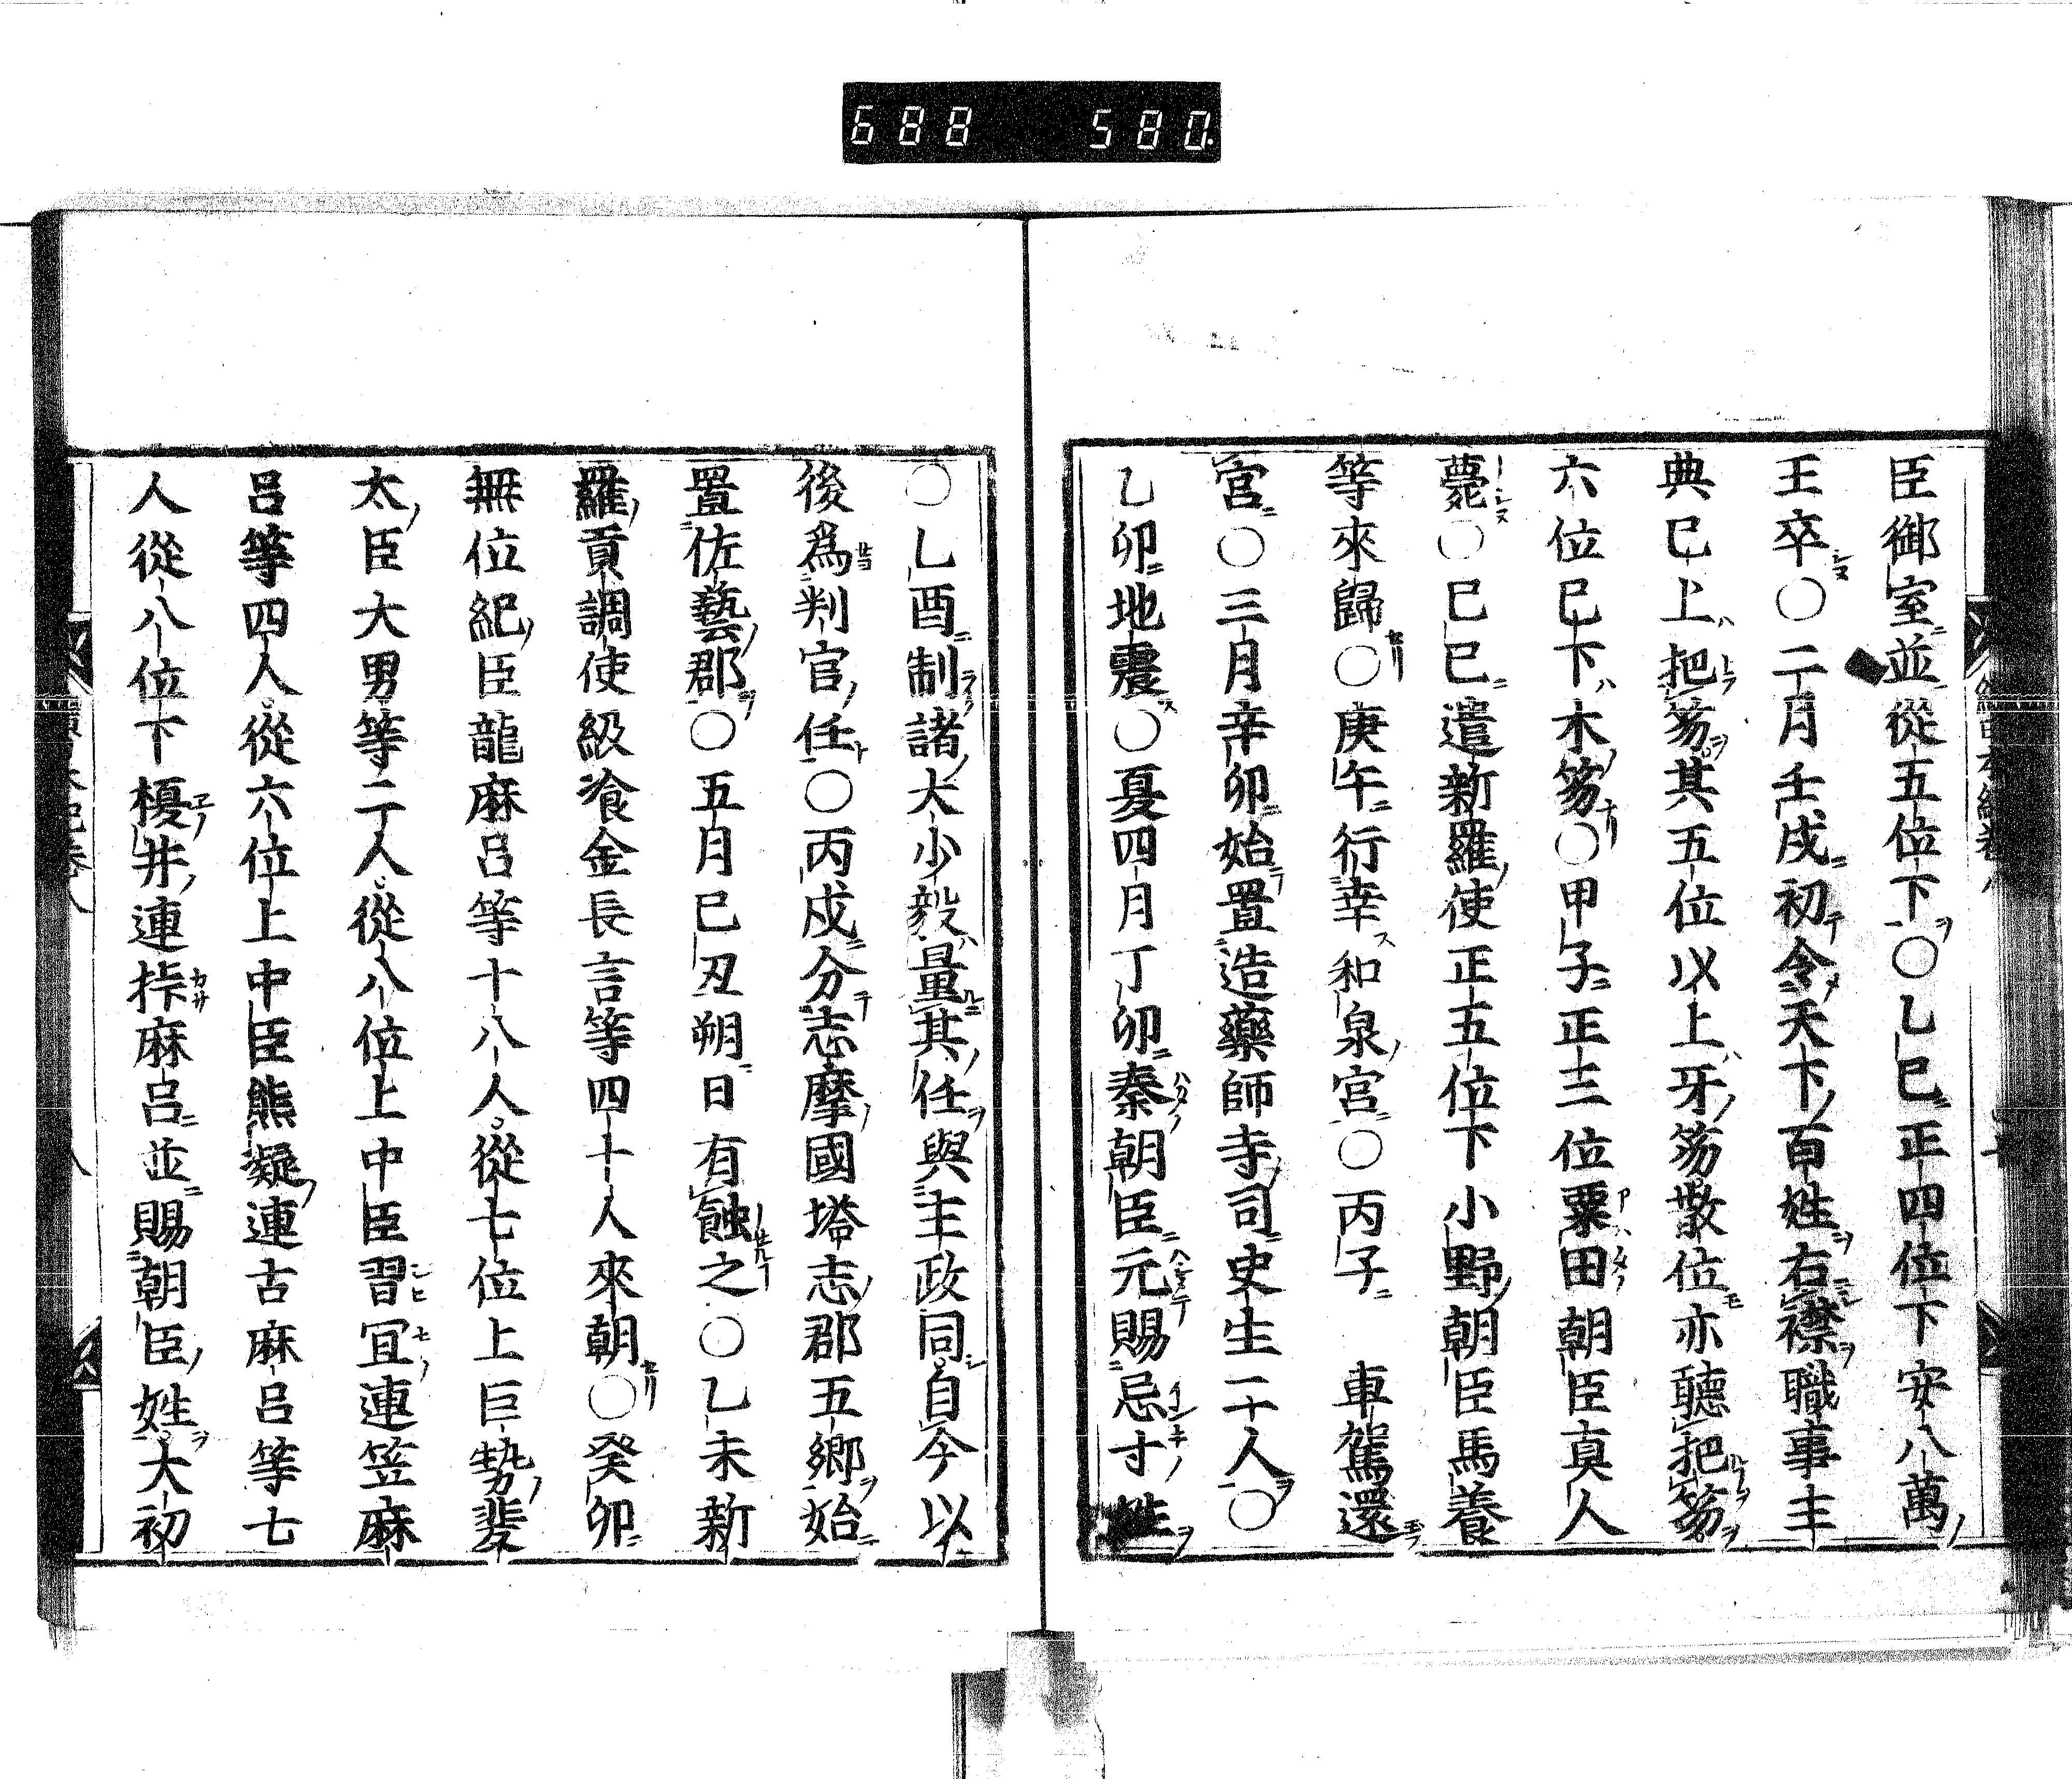 688 580.
臣御室並從五位下○乙巳正四位下安八萬
王卒○二月壬戌初令天下百姓右襟職事主
典巳上把笏其五位以上牙笏散位亦聽把笏
六位巳下木笏○甲子正三位粟田朝臣真人
薨○巳巳遣新羅使正五位下小野朝臣馬養
等來歸○庚午行幸和泉宮○丙子 車駕還
宮○三月辛卯始置造藥師寺司史生二十人○
乙卯地震○夏四月丁卯秦朝臣元賜忌寸姓
○乙酉制諸大少毅量其任與主政同自今以
後爲判官任○丙戌分志摩國塔志郡五郷始
置佐藝郡○五月巳丑朔日有蝕之○乙未新
羅貢調使級飡金長言等四十人來朝○癸卯
無位紀臣龍麻呂等十八人從七位上巨勢斐
太臣大男等二人從八位上中臣習冝連笠麻
呂等四人從六位上中臣熊凝連古麻呂等七
人從八位下榎井連挊麻呂並賜朝臣姓大初